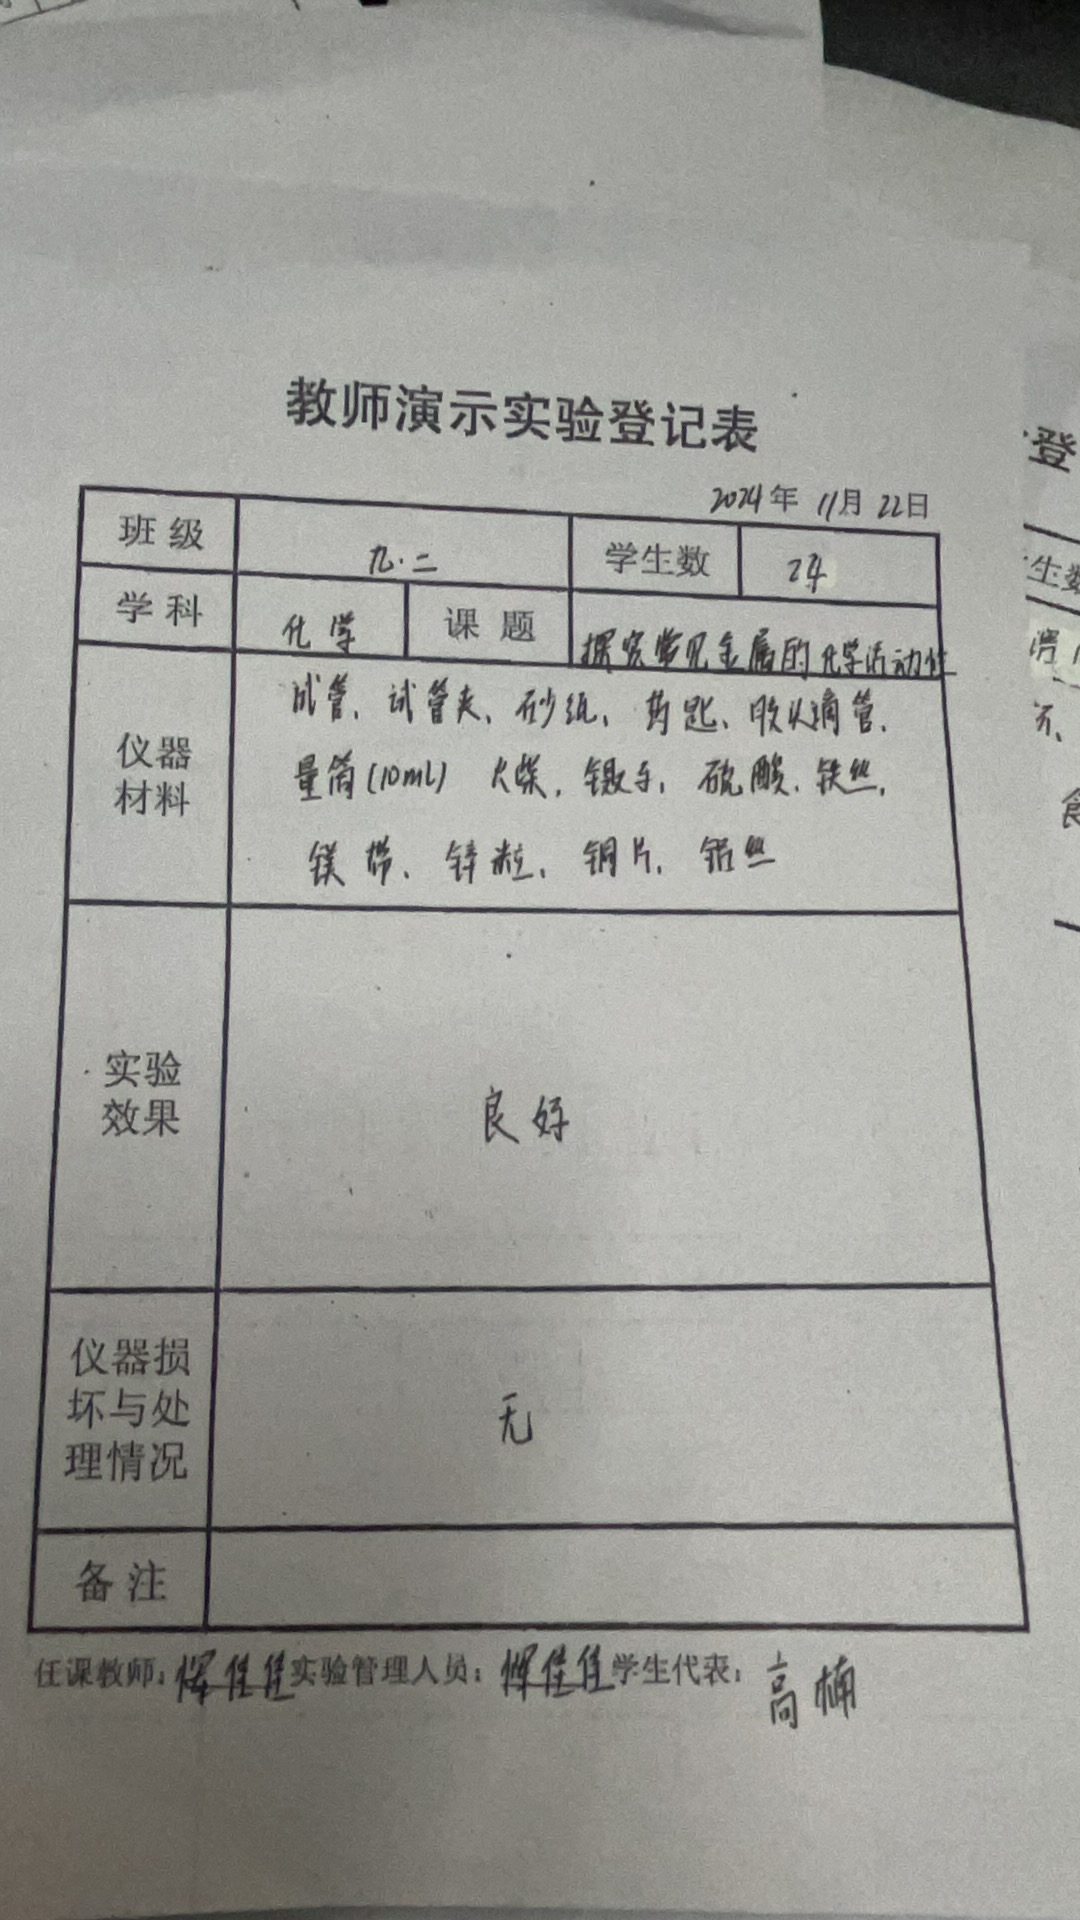 教师演示实验登记表
2024年 11月 22日
班级 九.二 学生数 24
学科 化学 课题 探究常见金属的化学活动性
仪器材料
试管、试管夹、砂纸、药匙、胶头滴管、
量筒(10mL) 火柴、镊子、硫酸、铁丝、
镁带、锌粒、铜片、铝丝
实验效果
良好
仪器损坏与处理情况
无
备注
任课教师: 恽佳佳 实验管理人员: 恽佳佳 学生代表: 高楠
登
生数